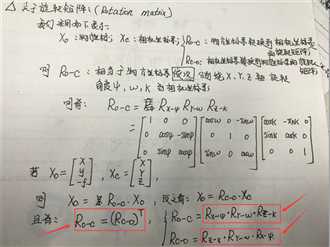 △ 关于旋转矩阵:(Rotation matrix)
我们采用如下表示:
X₀: 物方坐标; Xc: 相机坐标系; R₀₋c: 物方坐标系转换到相机坐标系的旋转矩阵;
Rc₋₀: 相机坐标系转换到物方坐标系的旋转矩阵;
则 R₀₋c: 相当于物方坐标系依次 绕 X、Y、Z 轴旋转
角度 φ, ω, κ 为相机坐标系.
则有: R₀₋c = Rx-φ Ry-ω Rz-κ
= [1 0 0; 0 cosφ -sinφ; 0 sinφ cosφ] [cosω 0 -sinω; 0 1 0; sinω 0 cosω] [cosκ -sinκ 0; sinκ cosκ 0; 0 0 1]
若 X₀ = [x y -f], Xc = [X Y Z],
则 X₀ = R₀₋c · X₀, 反之有: X₀ = Rc₋₀ · Xc
且有: R₀₋c = (Rc₋₀)ᵀ
{ R₀₋c = Rx-φ · Ry-ω · Rz-κ
Rc₋₀ = Rz-κ · Ry-ω · Rx-φ